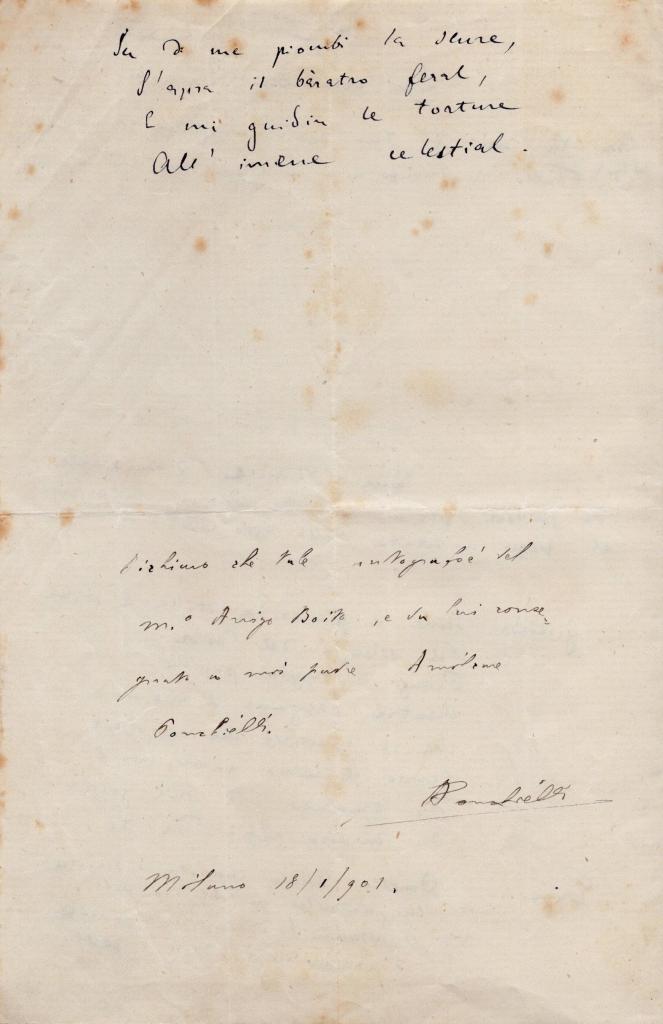 Su di me piombi la scure,
S'apra il bàratro feral,
E mi guidin le torture
All' imene celestial.
Dichiaro che tale autografo è del
M.º Arrigo Boito, e da lui conse-
gnato a mio padre Amilcare
Ponchielli.
Ponchielli
Milano 18/1/901.